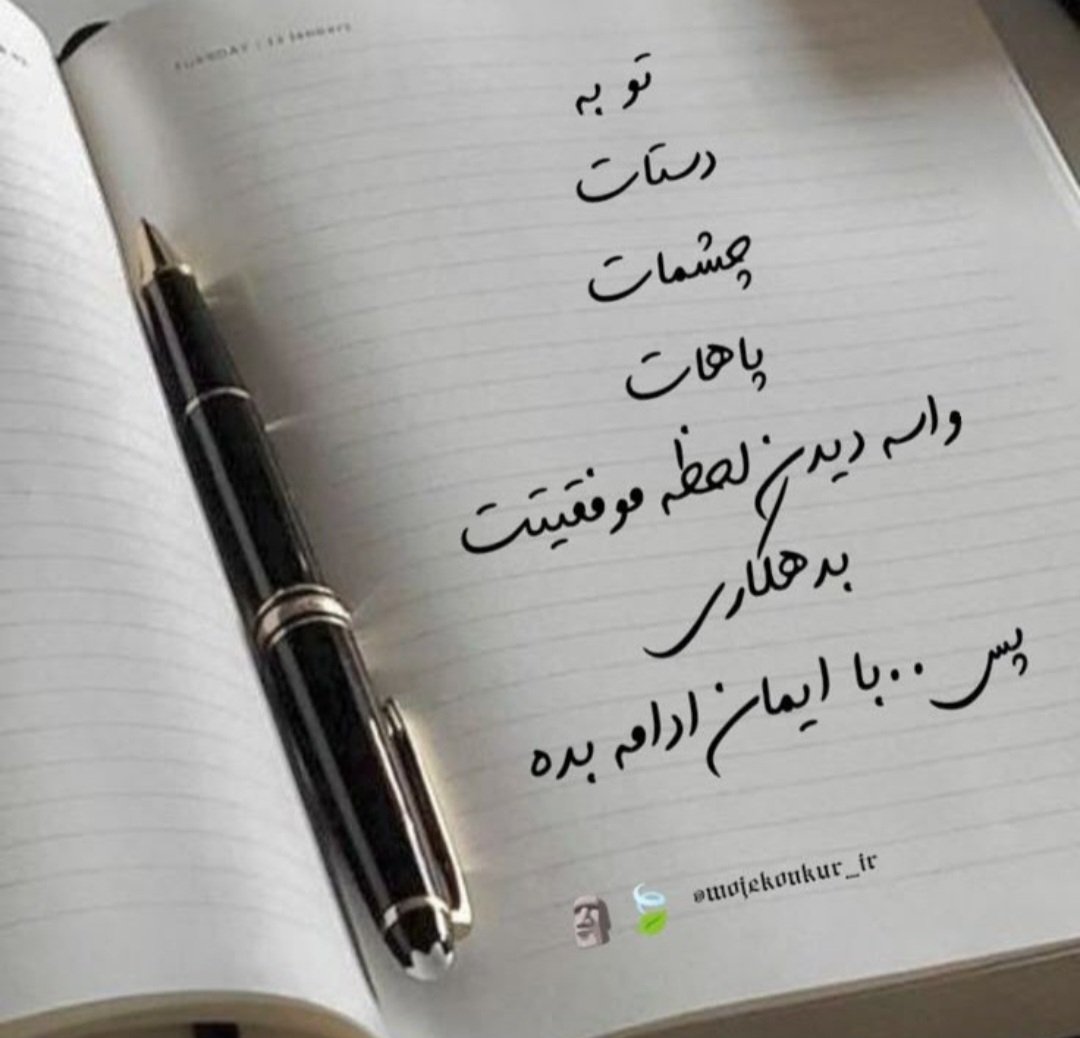 TUESDAY | 13 January
تو به
دستات
چشمات
پاهات
واسه دیدن لحظه موفقیتت
بدهکاری
پس ..با ایمان ادامه بده
@mojekonkur_ir